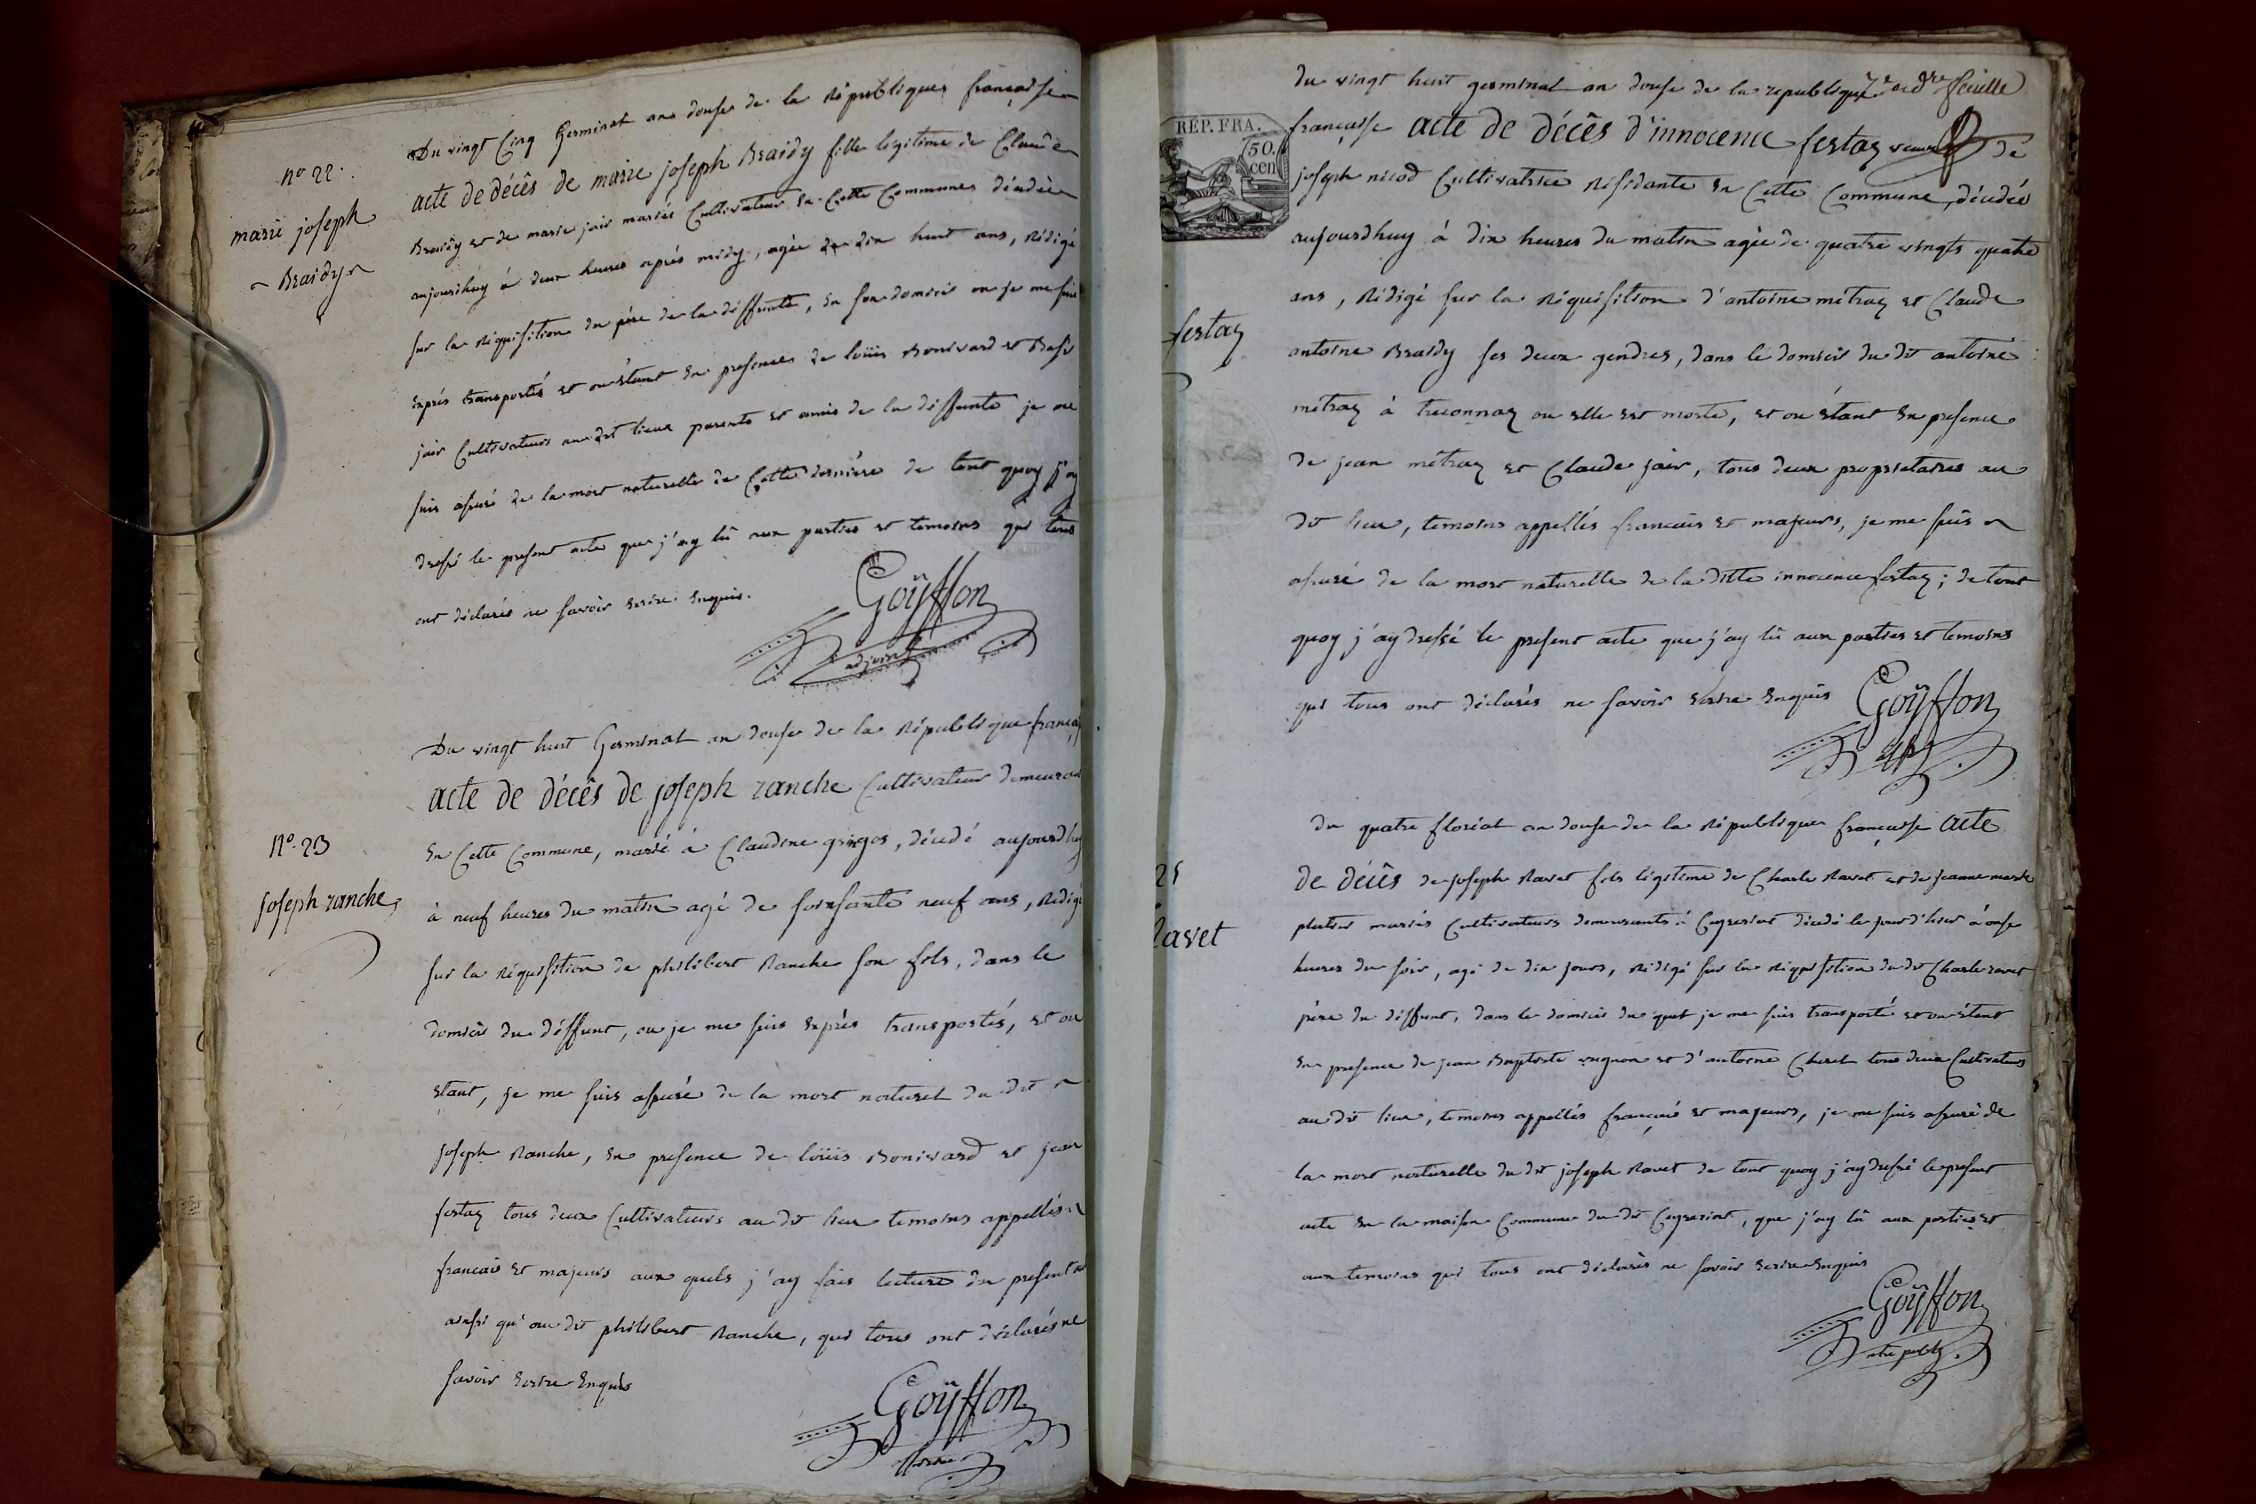 nº 22.
marie joseph
Braidy
Du vingt Cinq Germinal an douse de la républiques française
acte de décès de marie joseph Braidy fille legitime de Claude
Braidy et de marie jair mariés Cultivateurs En Cette Communes décédée
aujourdhuy à deux heures après midy, agée de dix huit ans, rédigé
sur la réquisition du père de la déffunte, En son domicil ou je me suis
Exprés transportés et ou étant En presence de loüis Bonivard et
jair Cultivateurs au dit lieux parents et amis de la déffunte je me
suis assuré de la mort naturelle de Cette dernière de tout quoy j'ay
dressé le present acte que j'ay lû aux parties et temoins qui tous
ont déclarés ne savoir Ecrire Enquis.
Goÿffon
adjoint
Nº 23
joseph ranche
Du vingt huit Germinal an douse de la république français
acte de décès de joseph ranche Cultivateur demeurant
En Cette Commune, marié à Claudine gringos, décédé aujourdhuy
à neuf heures du matin agé de soixsante neuf ans, rédigé
sur la réquisition de philibert Ranche son fils, dans le
domicil du déffunt, ou je me suis Exprès transportés, et ou
etant, je me suis assuré de la mort naturel du dit
joseph Ranche, En presence de loüis Bonivard et jean
festaz tous deux Cultivateurs au dit lieu temoins appellés
francais et majeurs aux quels j'ay fais lecture du present
ainsi qu'au dit philibert Ranche, qui tous ont déclarés ne
savoir Ecrire Enquis
Goÿffon
RÉP. FRA.
50.
cen
festaz
7e et dre feuille
du vingt huit germinal an douse de la republique
françaisse acte de décès d'innocence festaz veuve de
joseph nicod Cultivatrice résidante En Cette Commune, décédée
aujourdhuy à dix heures du matin agée de quatre vingts quatre
ans, rédigé sur la réquisition d'antoine métraz et Claude
antoine Braidy ses deux gendres, dans le domicil du dit antoine
métraz à treconnaz ou elle est morte, et ou étant En presence
de jean métraz et Claude jair, tous deux proprietaires au
dit lieu, temoins appellés francais et majeurs, je me suis
assuré de la mort naturelle de la ditte innocence festaz; de tout
quoy j'ay dressé le present acte que j'ay lû aux parties et temoins
qui tous ont déclarés ne savoir Ecrire Enquis
Goÿffon
25
Ravet
du quatre floréal an douse de la république françaisse acte
de décès de joseph Ravet fils légitime de Charle Ravet et de jeanne marie
mariés Cultivateurs demeurants à Ceyzeriat décédé le jour d'hier à onse
heures du soir, agé de dix jours, rédigé sur la réquisition du dit Charle ravet
père du déffunt, dans le domicil du quel je me suis transporté et ou étant
En presence de jean Baptiste et d'antoine tous deux Cultivateurs
au dit lieu, temoins appellés français et majeurs, je me suis assuré de
la mort naturelle du dit joseph Ravet de tout quoy j'ay dressé le present
acte En la maison Commune du dit Ceyzeriat, que j'ay lû aux parties et
aux temoins qui tous ont déclarés ne savoir Ecrire Enquis
Goÿffon